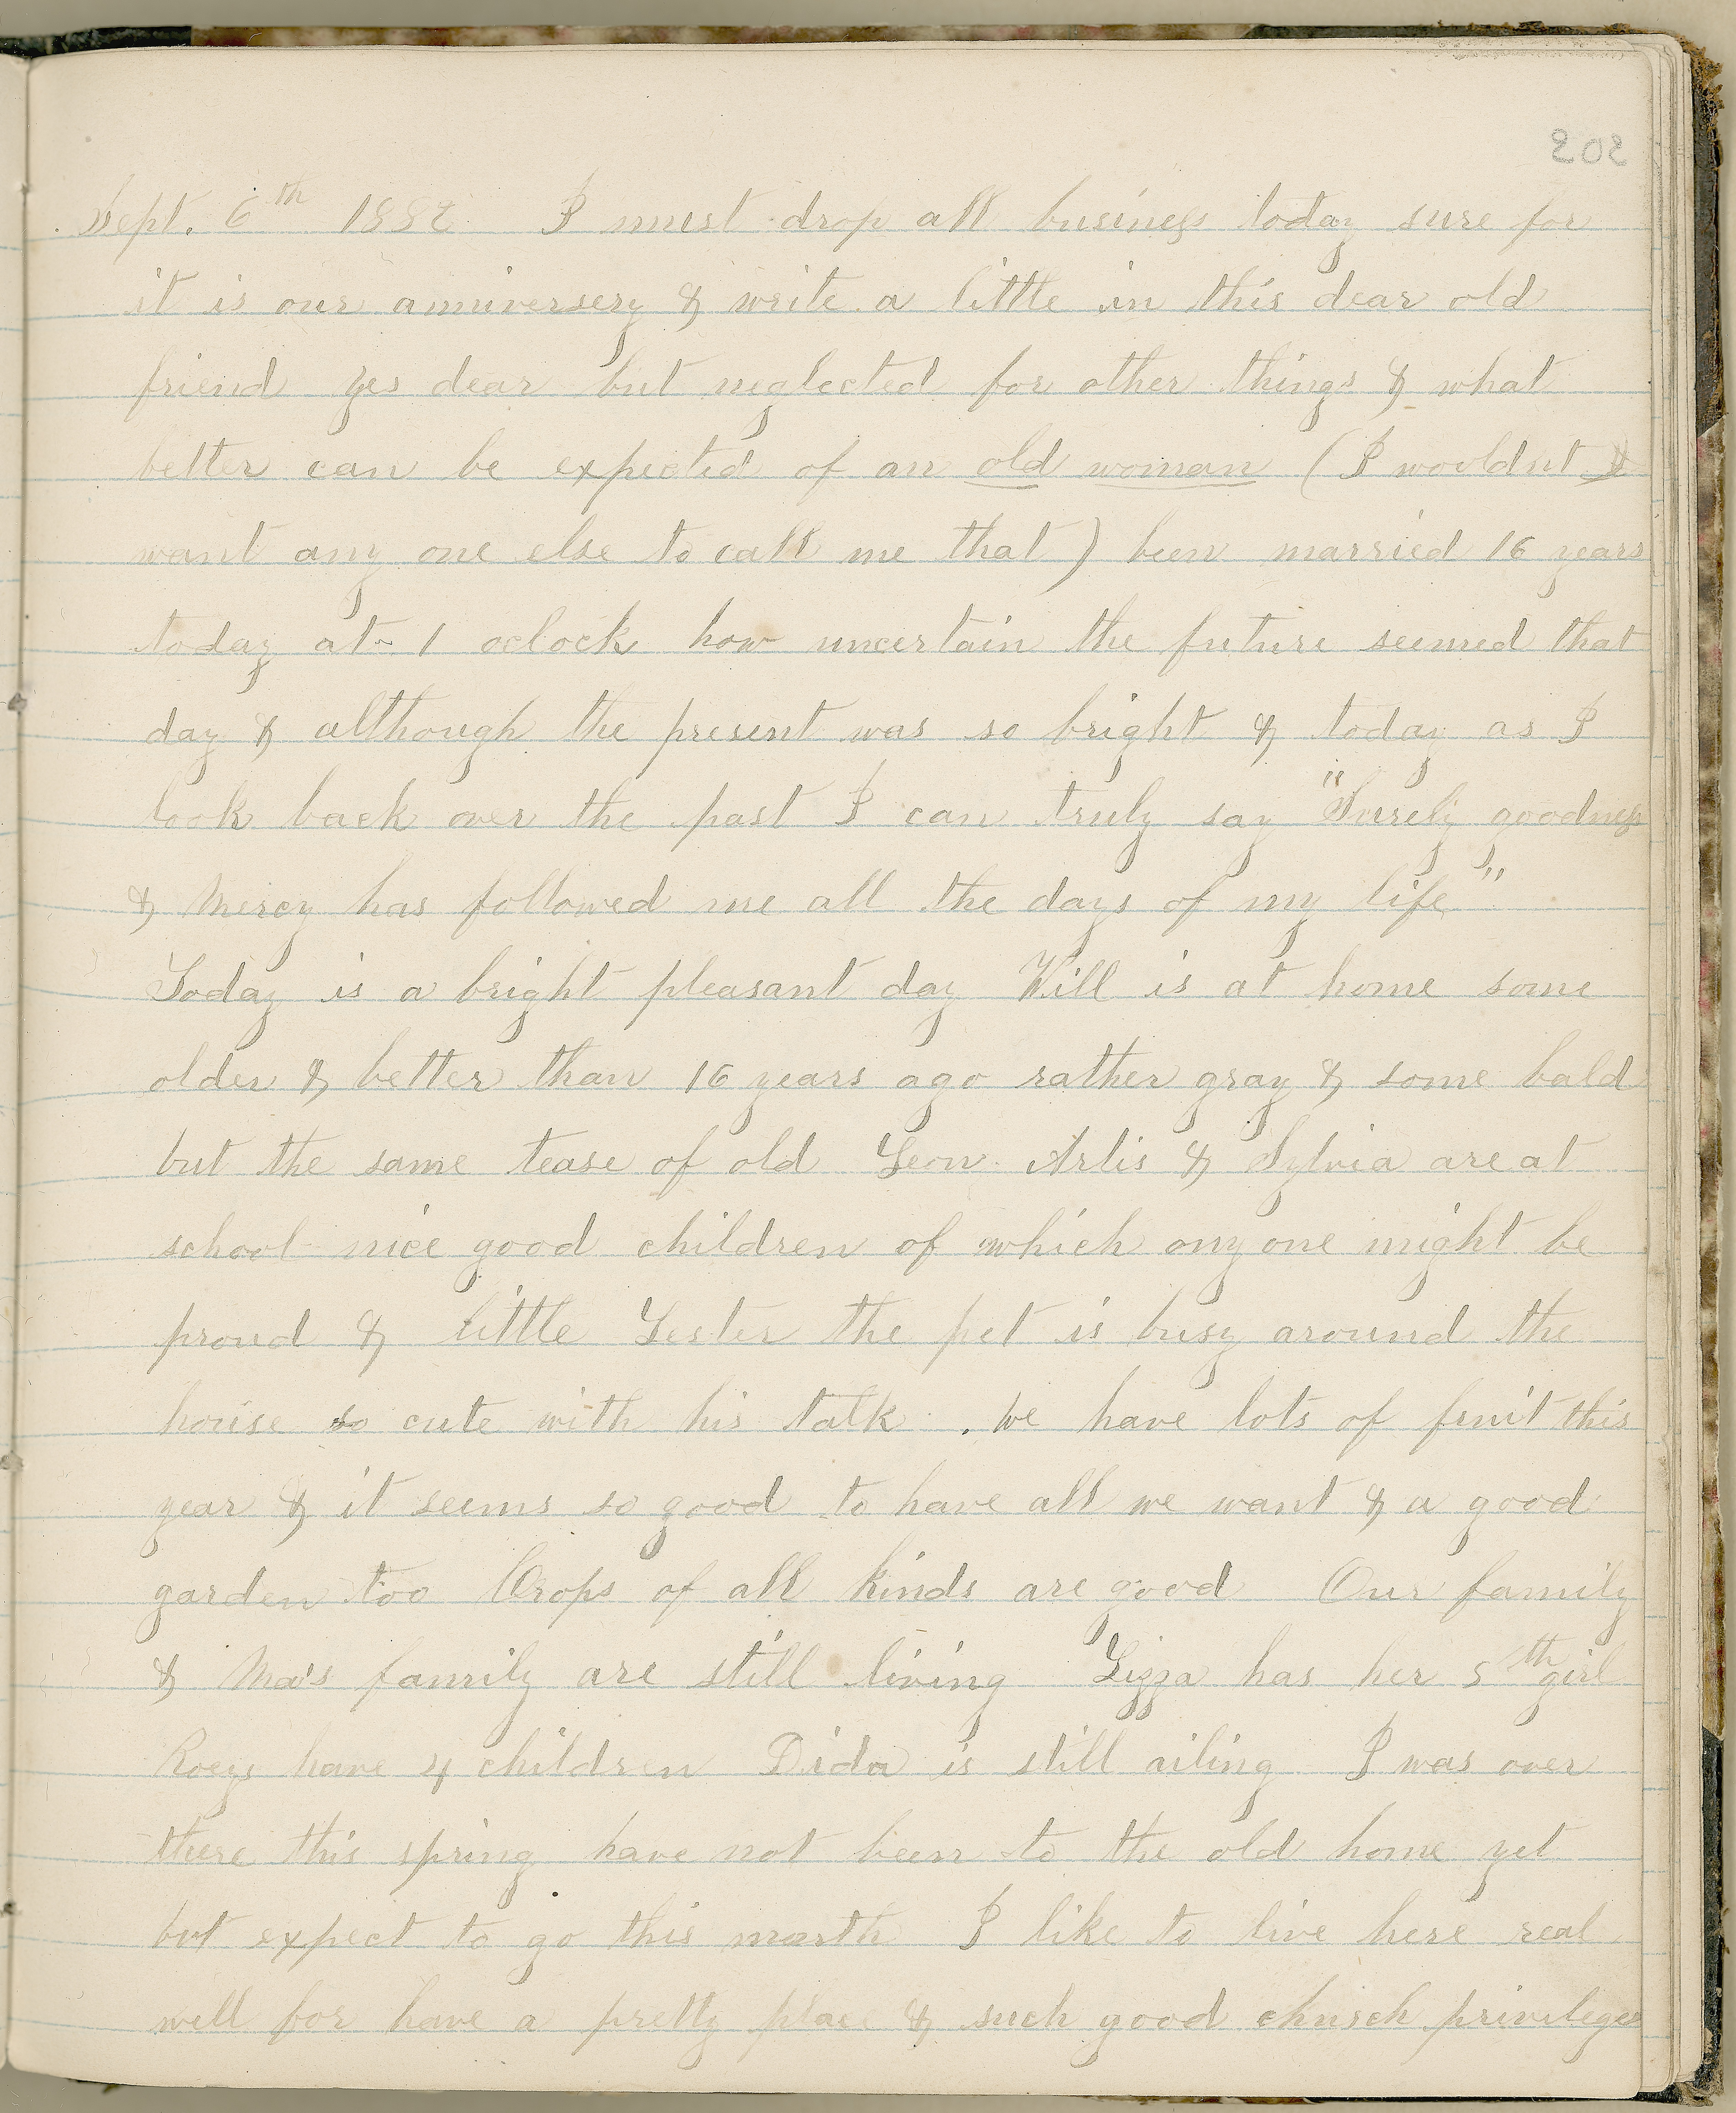 202
Sept. 6th 1882 I must drop all business today sure for
it is our anniversery & write a little in this dear old
friend yes dear but neglected for other things & what
better can be expected of an old woman (I wouldnt
want any one else to call me that) been married 16 years
today at 1 oclock how uncertain the future seemed that
day & although the present was so bright & today as I
look back over the past I can truly say "Surely goodness
& Mercy has followed me all the days of my life"
Today is a bright pleasant day Will is at home some
older & better than 16 years ago rather gray & some bald
but the same tease of old Leon Arlis & Sylvia are at
school nice good children of which any one might be
proud & little Lester the pet is busy around the
house so cute with his talk. We have lots of fruit this
year & it seems so good to have all we want & a good
garden too Crops of all kinds are good Our family
& Ma's family are still living Lizza has her 5th girl
Roeys have 4 children Dida is still ailing I was over
there this spring have not been to the old home yet
but expect to go this month I like to live here real
well for have a pretty place & such good church privileges